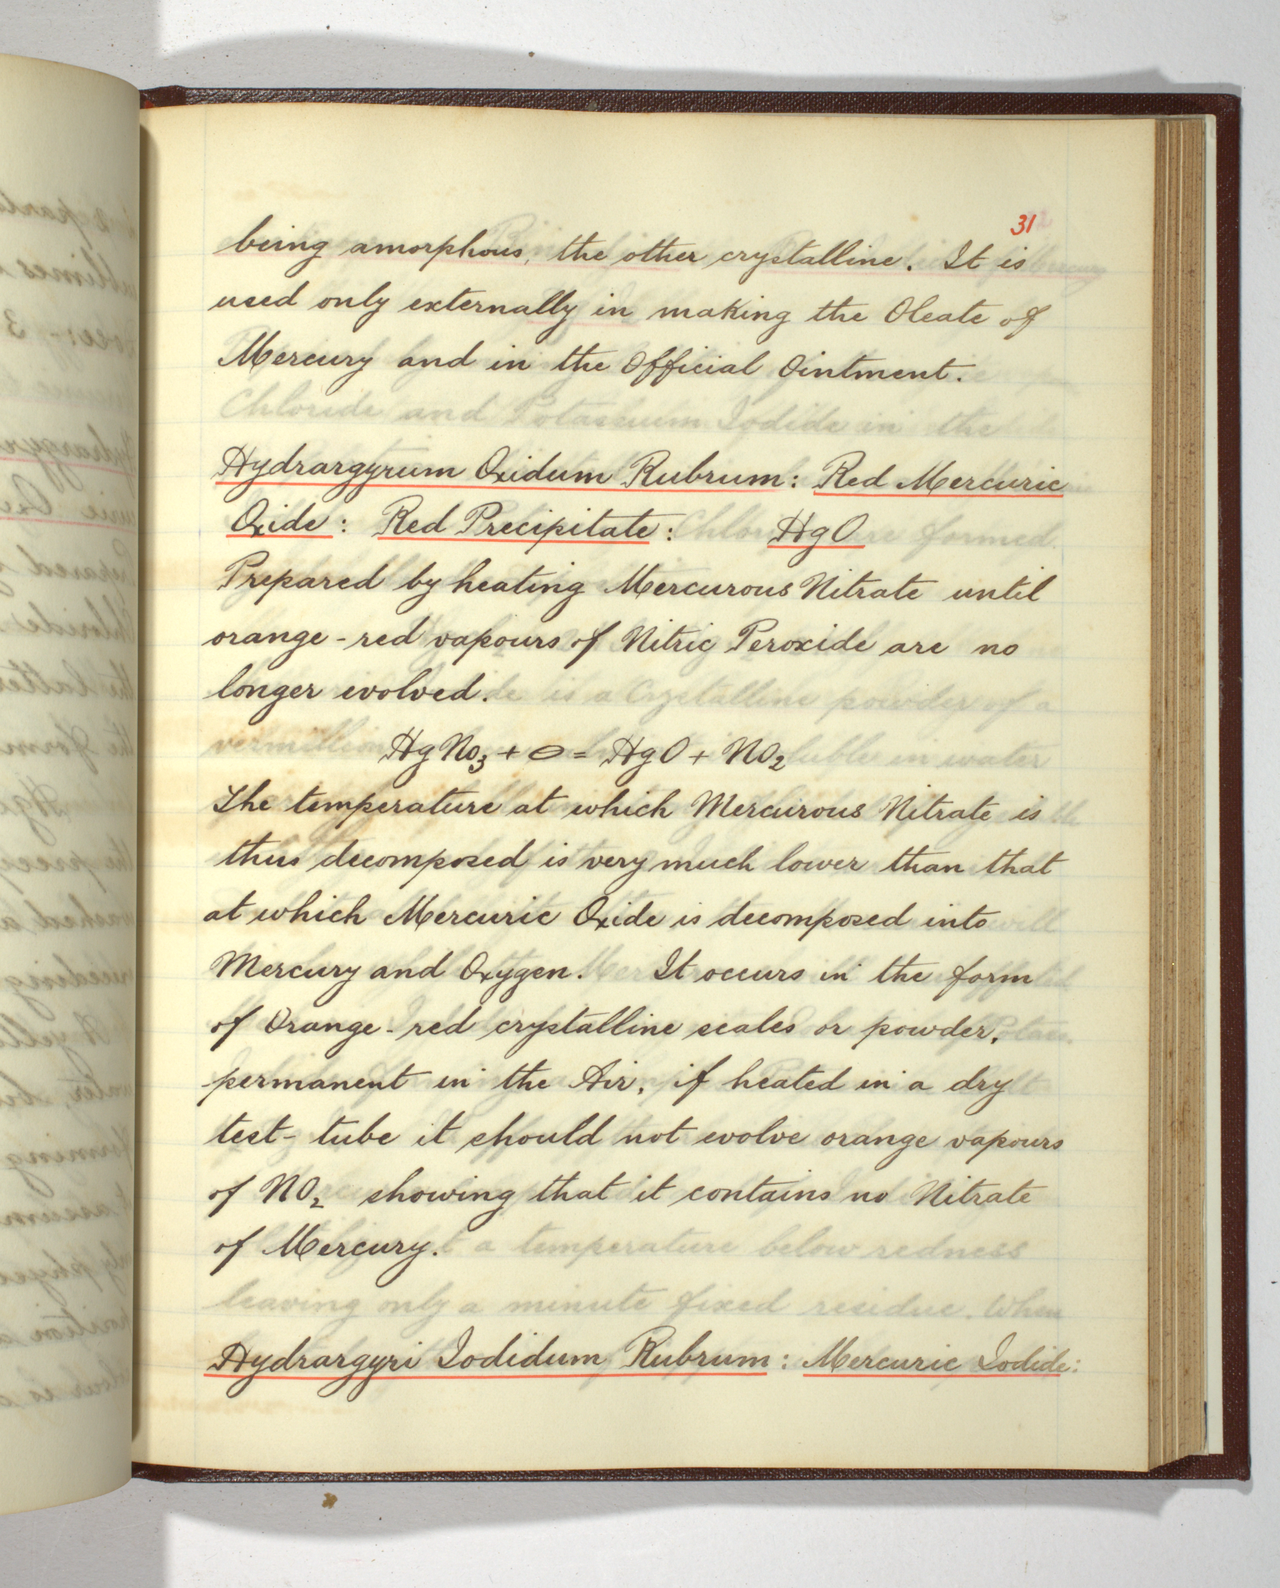 31
being amorphous, the other crystalline. It is
used only externally in making the Oleate of
Mercury and in the Official Ointment.
Hydrargyrum Oxidum Rubrum: Red Mercuric
Oxide: Red Precipitate: HgO
Prepared by heating Mercurous Nitrate until
orange-red vapours of Nitric Peroxide are no
longer evolved.
HgNo₃ + O = HgO + NO₂
The temperature at which Mercurous Nitrate is
thus decomposed is very much lower than that
at which Mercuric Oxide is decomposed into
Mercury and Oxygen. It occurs in the form
of Orange-red crystalline scales or powder,
permanent in the Air, if heated in a dry
test-tube it should not evolve orange vapours
of NO₂ showing that it contains no Nitrate
of Mercury.
Hydrargyri Iodidum Rubrum: Mercuric Iodide: